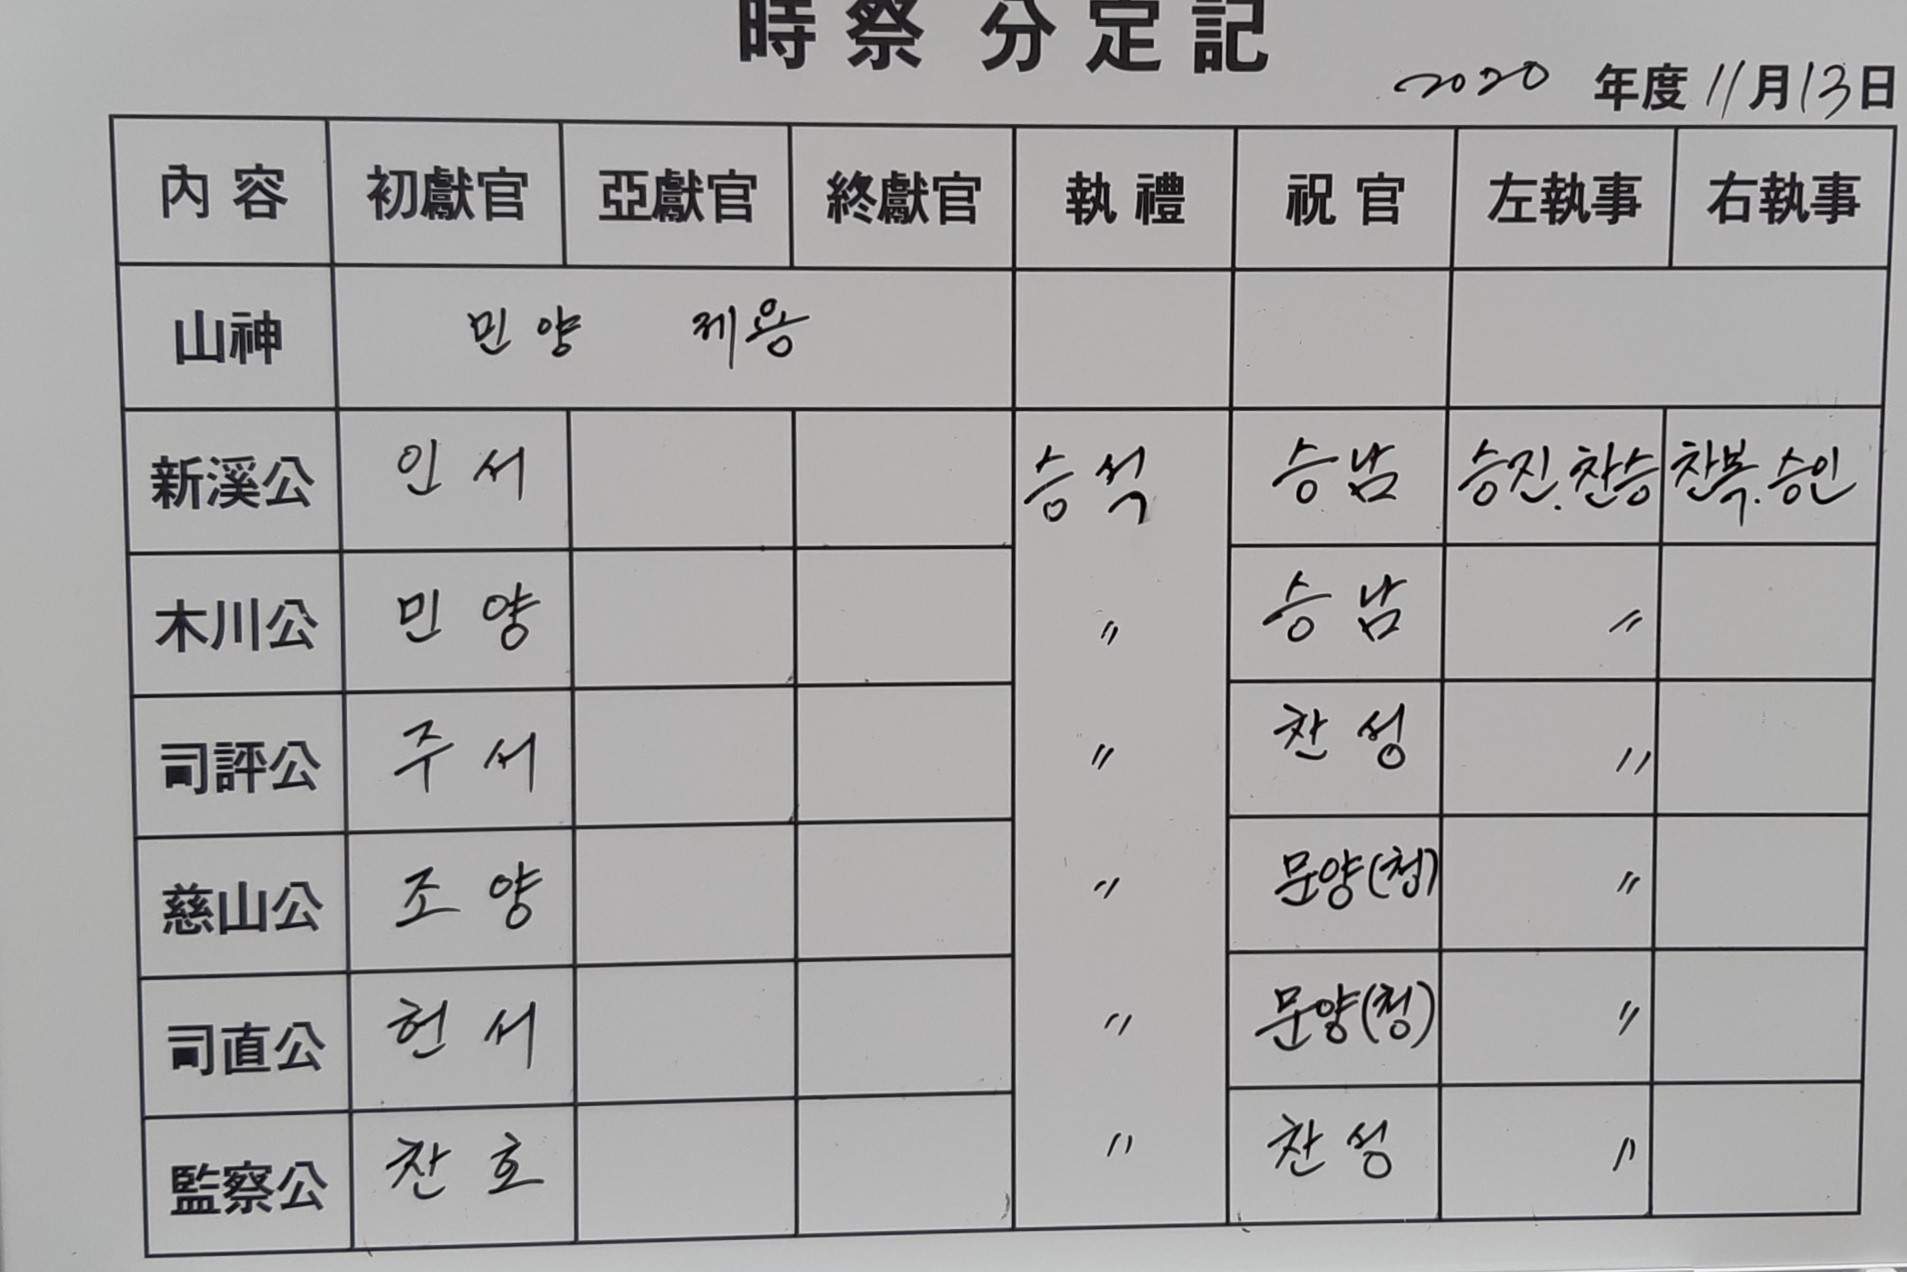 時祭 分定記
2020 年度 11月 13日
內容 初獻官 亞獻官 終獻官 執禮 祝官 左執事 右執事
山神 민양 제용
新溪公 인서 승석 승남 승진.찬승 찬복.승인
木川公 민양 〃 승남 〃
司評公 주서 〃 찬성 〃
慈山公 조양 〃 문양(청) 〃
司直公 헌서 〃 문양(청) 〃
監察公 찬호 〃 찬성 〃